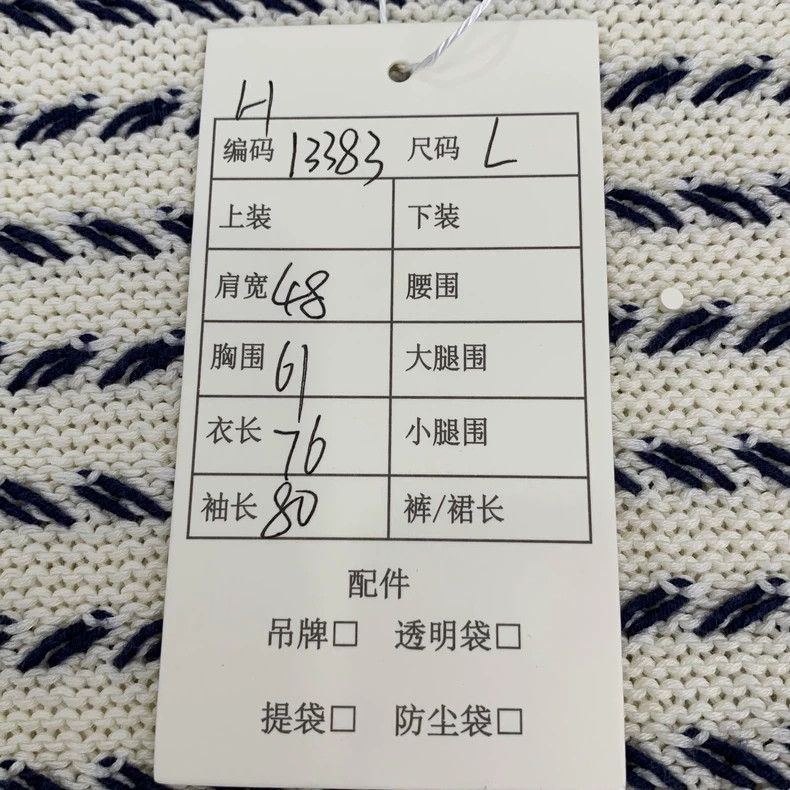 H
编码 13383 尺码 L
上装 下装
肩宽 48 腰围
胸围 61 大腿围
衣长 76 小腿围
袖长 80 裤/裙长
配件
吊牌□ 透明袋□
提袋□ 防尘袋□